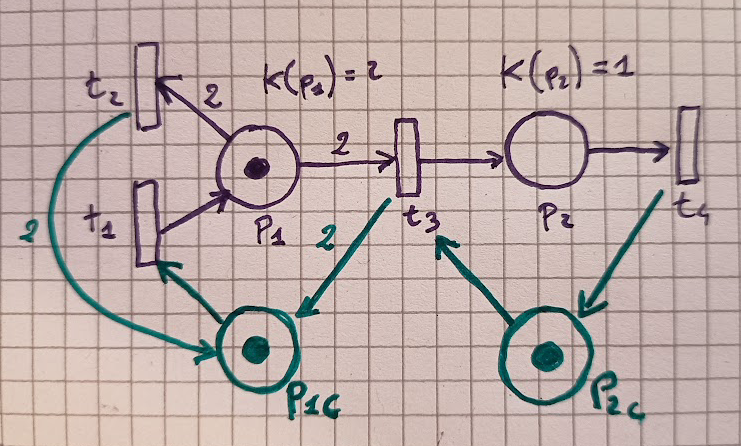 K(p₁) = 2
K(p₂) = 1
t₂
2
2
t₁
P₁
t₃
P₂
t₄
2
2
P₁c
P₂c